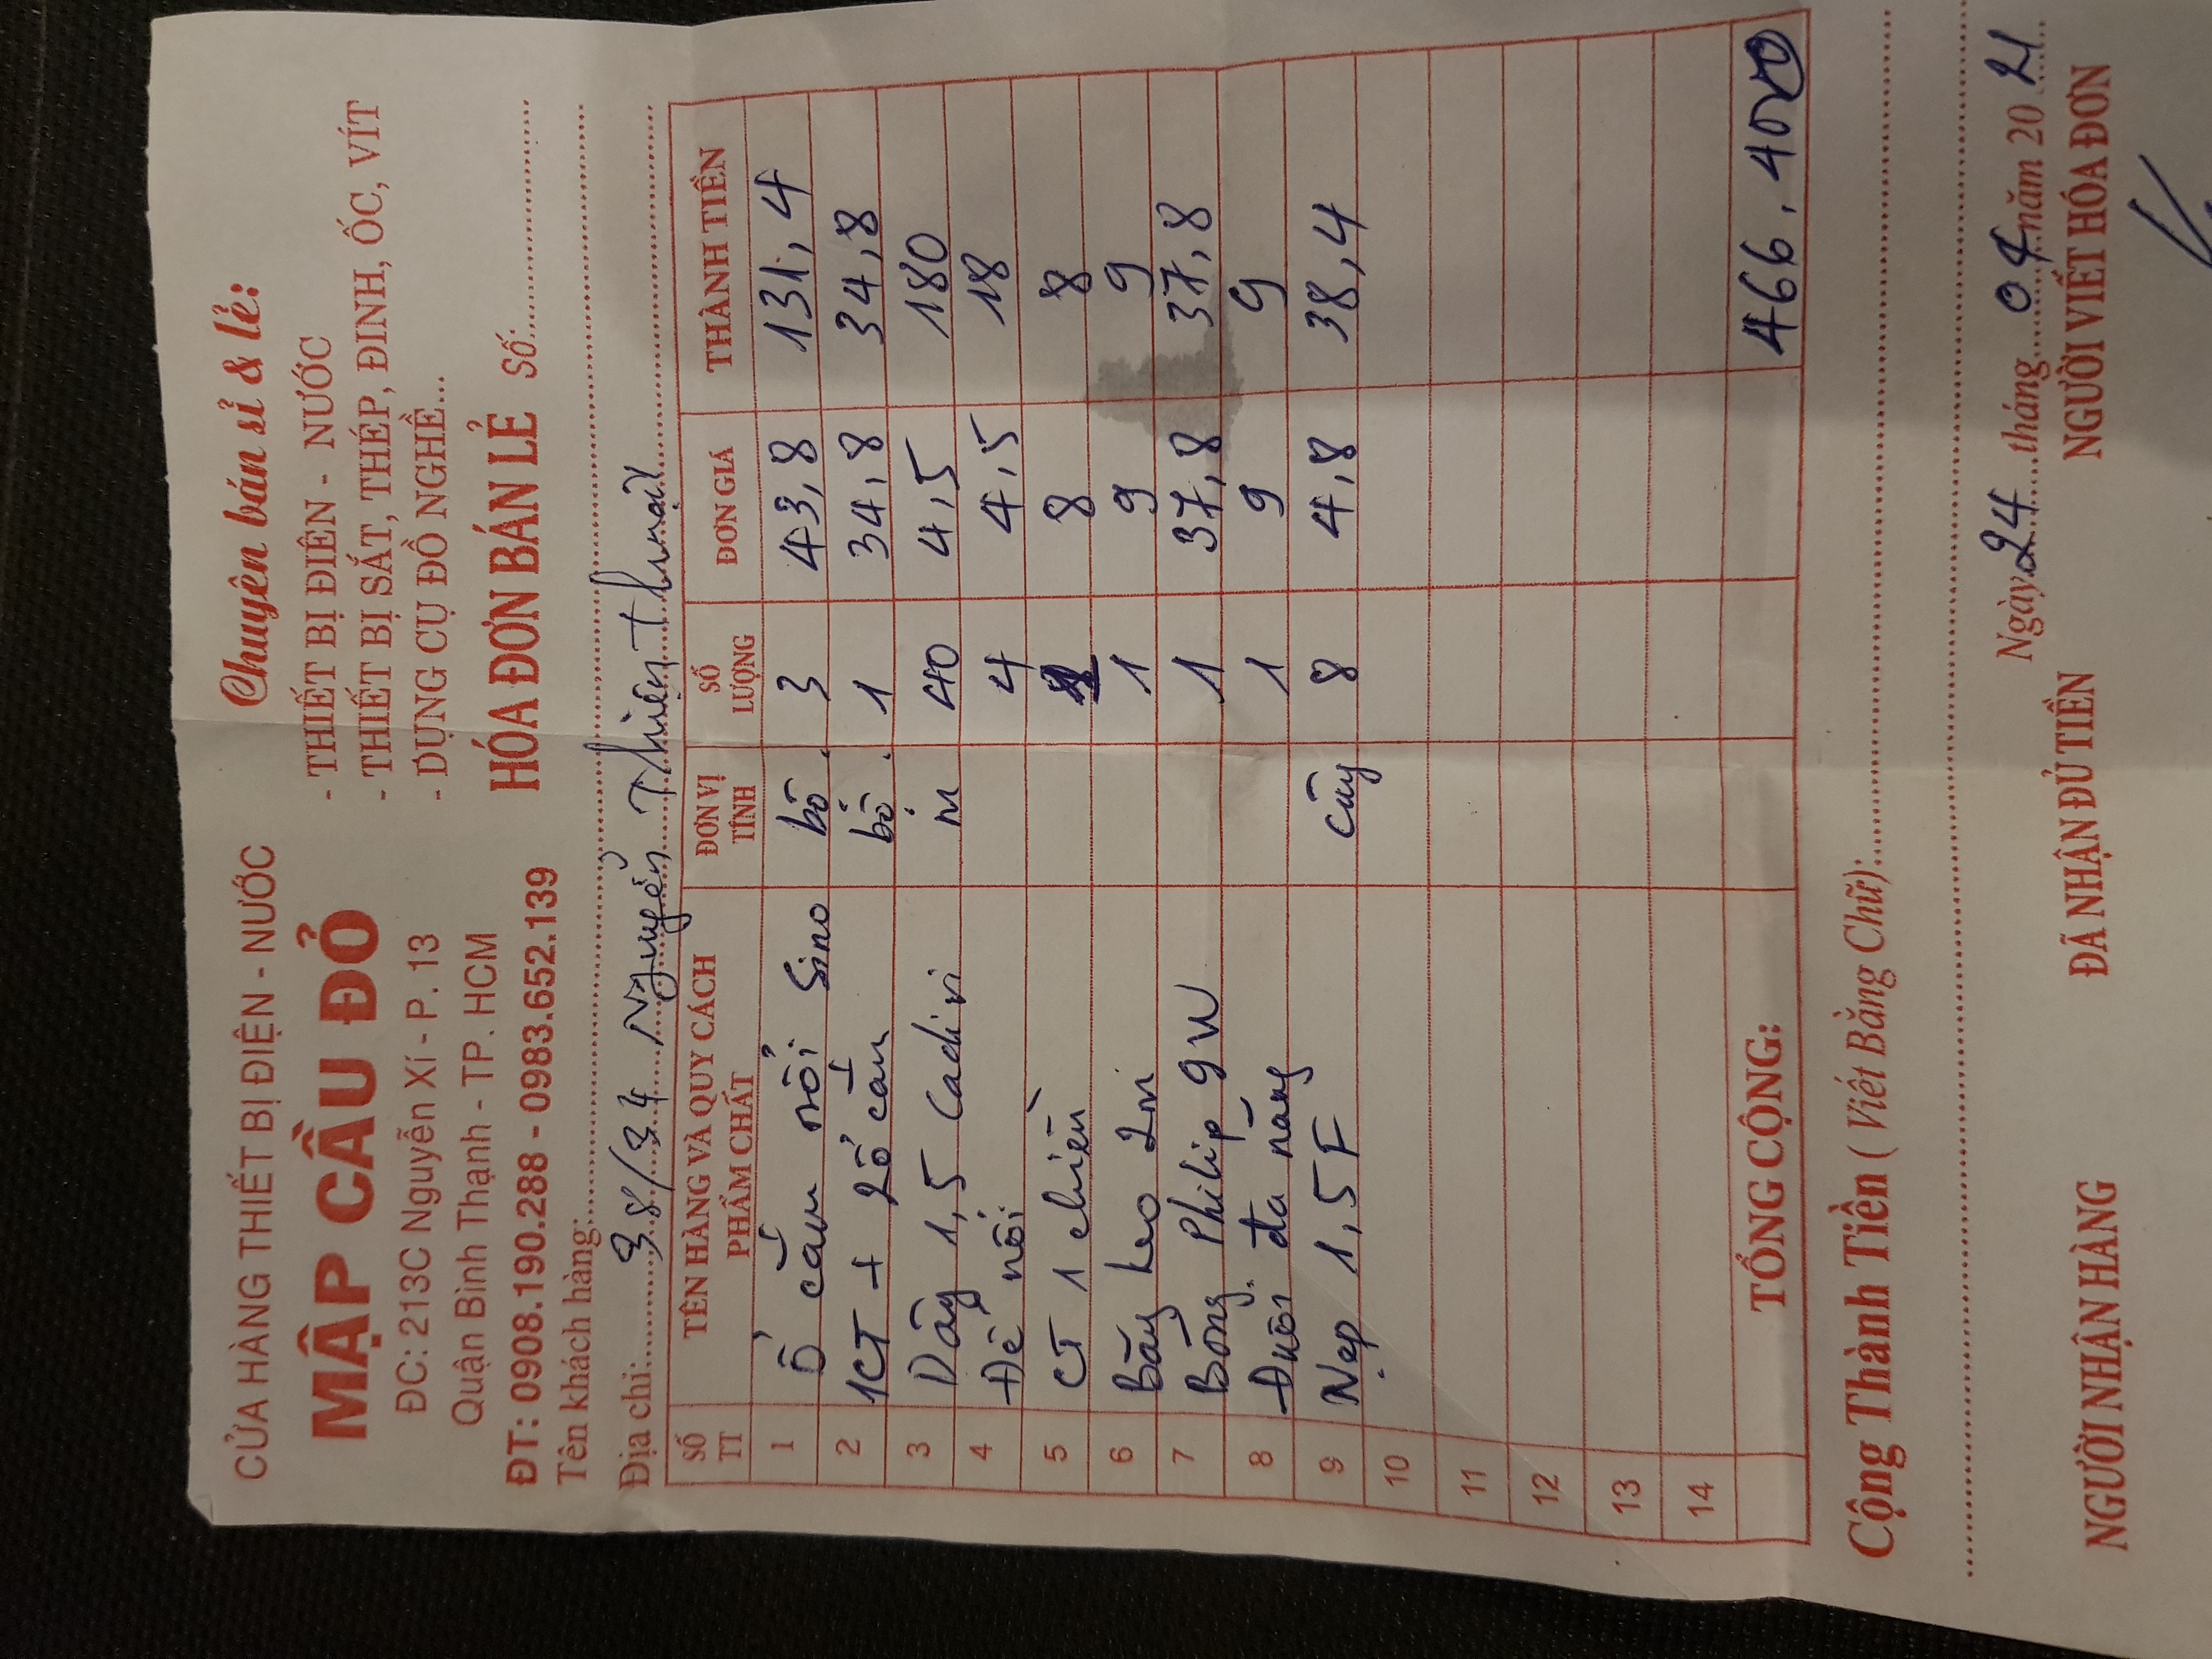 CỬA HÀNG THIẾT BỊ ĐIỆN - NƯỚC
MẬP CẦU ĐỎ
ĐC: 213C Nguyễn Xí - P. 13
Quận Bình Thạnh - TP. HCM
ĐT: 0908.190.288 - 0983.652.139
Chuyên bán sỉ & lẻ:
- THIẾT BỊ ĐIỆN - NƯỚC
- THIẾT BỊ SẮT, THÉP, ĐINH, ỐC, VÍT
- DỤNG CỤ ĐỒ NGHỀ...
HÓA ĐƠN BÁN LẺ Số:
Tên khách hàng:
Địa chỉ: 38/34 Nguyễn Thiện Thuật
SỐ TT TÊN HÀNG VÀ QUY CÁCH PHẨM CHẤT ĐƠN VỊ TÍNH SỐ LƯỢNG ĐƠN GIÁ THÀNH TIỀN
1 Ổ cắm nổi Sino bộ 3 43,8 131,4
2 1CT + 2ổ cắm bộ 1 34,8 34,8
3 Dây 1,5 Cadivi m 40 4,5 180
4 Đế nổi 4 4,5 18
5 CT 1 chiều 8 8
6 Băng keo 1 9 9
7 Bóng Philip 9W 1 37,8 37,8
8 Đuôi đa năng 1 9 9
9 Nẹp 1,5F cây 8 4,8 38,4
10
11
12
13
14
TỔNG CỘNG: 466.400
Cộng Thành Tiền ( Viết Bằng Chữ):
Ngày 24 tháng 04 năm 20 21
NGƯỜI NHẬN HÀNG ĐÃ NHẬN ĐỦ TIỀN NGƯỜI VIẾT HÓA ĐƠN